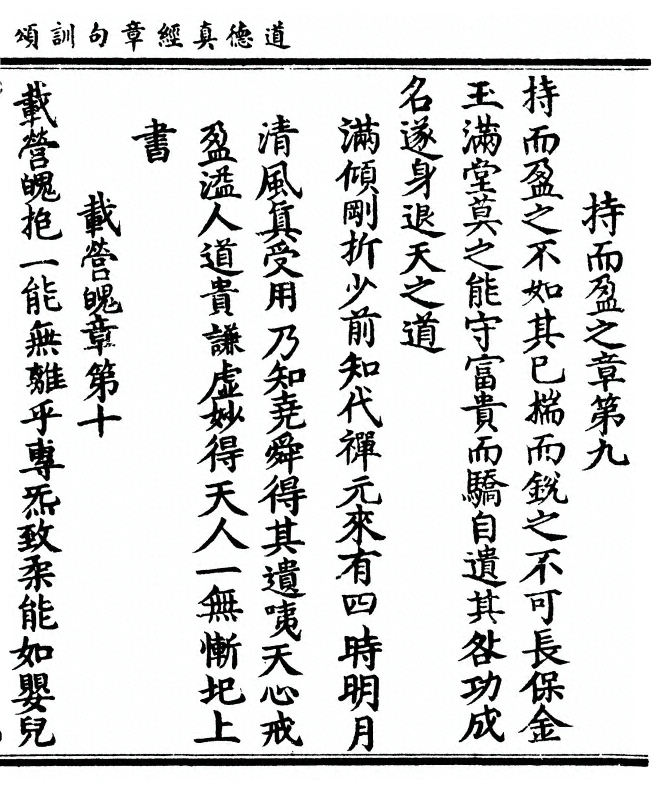 道德真經章句訓頌
持而盈之章第九
持而盈之不如其已揣而銳之不可長保金
玉滿堂莫之能守富貴而驕自遺其咎功成
名遂身退天之道
滿傾剛折少前知代禪元來有四時明月
清風真受用乃知堯舜得其遺咦天心戒
盈溢人道貴謙虛妙得天人一無慚圯上
書
載營魄章第十
載營魄抱一能無離乎專炁致柔能如嬰兒